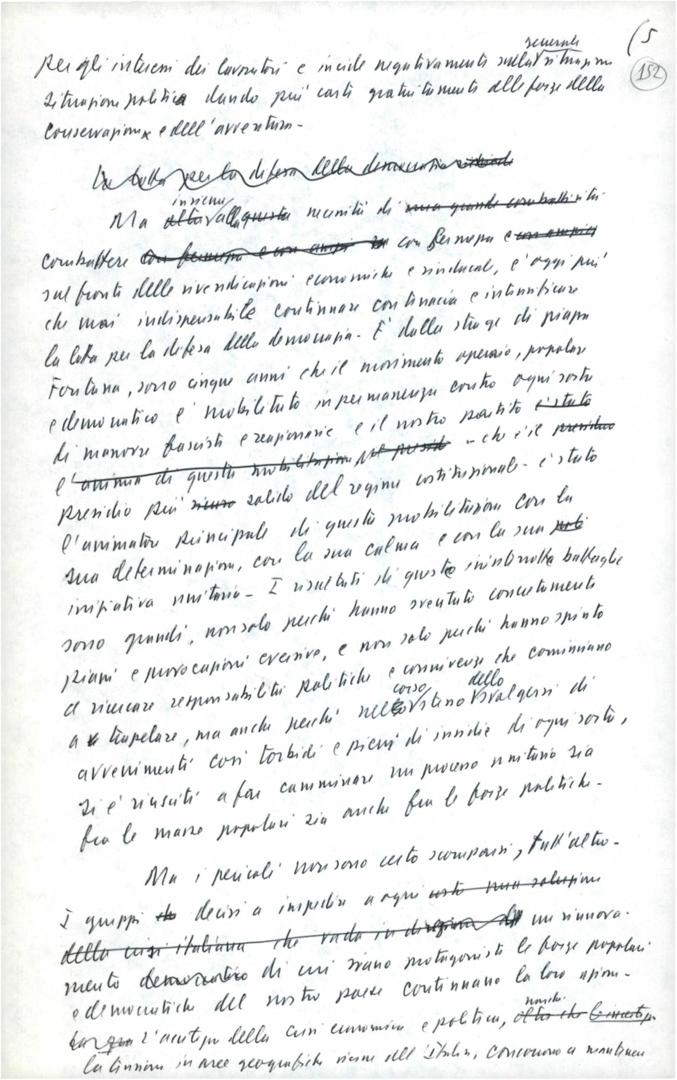 (5
152
generale
per gli interessi dei lavoratori e incide negativamente sulla situazione
situazione politica dando più carte gratuitamente alle forze della
conservazione e dell'avventura -
La lotta per la difesa della democrazia
insieme
Ma oltre alla questa necessità di una grande combattività
combattere con fermezza e con ampi con fermezza e con ampiezza
sul fronte delle rivendicazioni economiche e sindacali, è oggi più
che mai indispensabile continuare con tenacia e intensificare
la lotta per la difesa della democrazia. È dalla strage di piazza
Fontana, sono cinque anni che il movimento operaio, popolare
e democratico è mobilitato in permanenza contro ogni sorta
di manovre fasciste e reazionarie e il nostro partito è stato
l'anima di questa mobilitazione - che è il presidio
presidio più sicuro solido del regime costituzionale - è stato
l'animatore principale di questa mobilitazione con la
sua determinazione, con la sua calma e con la sua
iniziativa unitaria - I risultati di questa ininterrotta battaglia
sono grandi, non solo perché hanno sventato concretamente
piani e provocazioni eversive, e non solo perché hanno spinto
a ricercare responsabilità politiche e connivenze che cominciano
a trapelare, ma anche perché nel corso dello svolgersi di
avvenimenti così torbidi e pieni di insidie di ogni sorta,
si è riusciti a far camminare un processo unitario sia
fra le masse popolari sia anche fra le forze politiche -
Ma i pericoli non sono certo scomparsi, tutt'altro -
I gruppi decisi a impedire a ogni costo una soluzione
della crisi italiana che vada in direzione un rinnova-
mento democratico di cui siano protagoniste le forze popolari
e democratiche del nostro paese continuano la loro azione -
nonché
l'acutezza della crisi economica e politica, oltre che
la tensione in aree geografiche vicine all'Italia, concorrono a mantenere